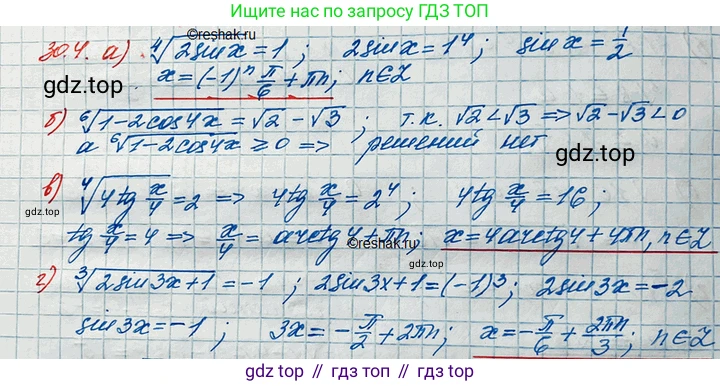 Ищите нас по запросу ГДЗ ТОП
©reshak.ru
30.4. а) ⁴√(2sinx) = 1; 2sinx = 1⁴; sinx = 1/2
x = (-1)ⁿ π/6 + πn; n∈Z
gdz.top
б) ⁶√(1-2cos4x) = √2 - √3; т.к. √2 < √3 => √2 - √3 < 0
а ⁶√(1-2cos4x) ≥ 0 => решений нет
gdz.top
в) ⁴√(4tg x/4) = 2 => 4tg x/4 = 2⁴; 4tg x/4 = 16;
gdz.top
tg x/4 = 4 => x/4 = arctg4 + πn; x = 4arctg4 + 4πn, n∈Z
©reshak.ru
г) ³√(2sin3x+1) = -1; 2sin3x+1 = (-1)³; 2sin3x = -2
sin3x = -1; 3x = -π/2 + 2πn; x = -π/6 + 2πn/3; n∈Z
gdz.top // гдз.топ // gdz.top // гдз.топ